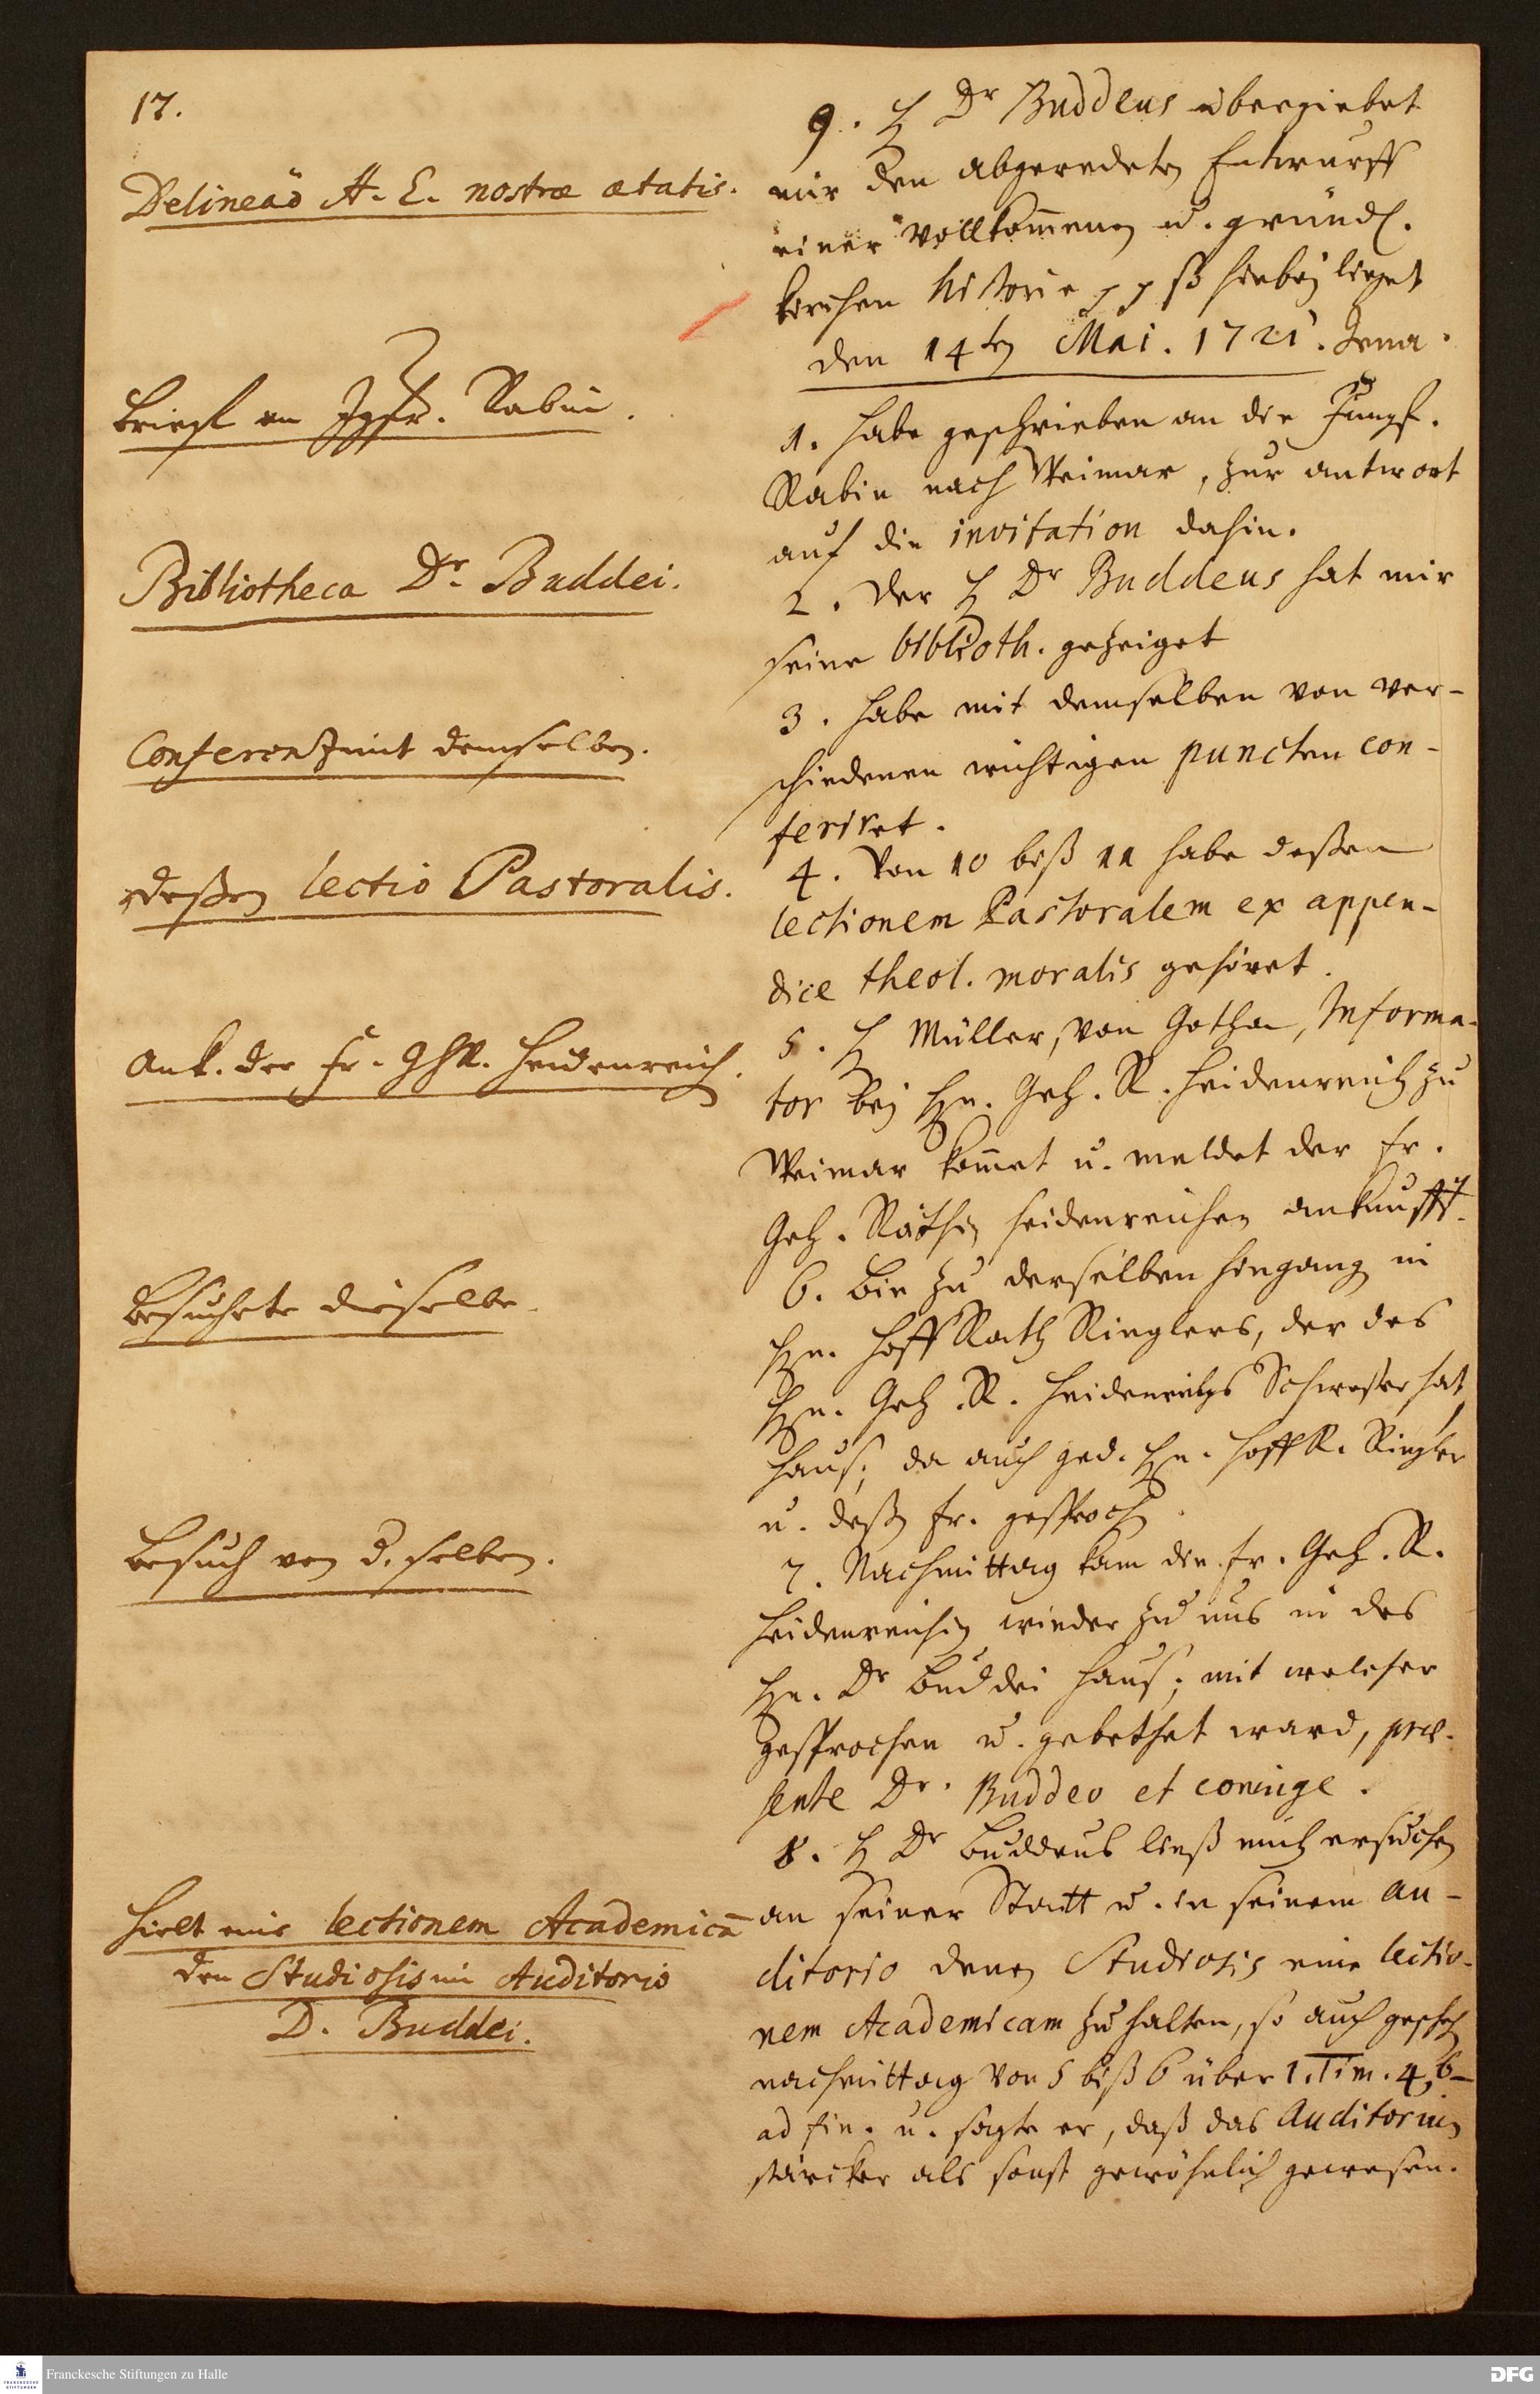 17.
Delineaõ H. E. nostræ ætatis.
Brieff an Jgfr. Rabin.
Bibliotheca Dr. Buddei.
Conferenz mit demselben.
deßen lectio Pastoralis.
Ank. der Fr. GhR. Heidenreich.
Besuchte dieselbe.
Besuch von d. selben.
Hielt eine lectionem Academicā
den Studiosis im Auditorio
D. Buddei.
9. H Dr Buddeus übergiebet
mir den abgeredeten Entwurff
einer vollkom̄enen u. gründl.
Kirchen Historie pp so hierbey lieget
den 14ten Mai. 1721. Jena.
1. Habe geschrieben an die Jungf.
Rabin nach Weimar, zur antwort
auf die invitation dahin.
2. Der H Dr Buddeus hat mir
seine biblioth. gezeiget
3. Habe mit demselben von ver-
schiedenen wichtigen puncten con-
feriret.
4. Von 10 biß 11 habe deßen
lectionem Pastoralem ex appen-
dice theol. moralis gehöret.
5. H Müller, von Gotha, Informa-
tor bey Hn. Geh. R. Heidenreich zu
Weimar kom̄et u. meldet der Fr.
Geh. Räthin Heidenreichen ankunfft.
6. Bin zu derselben hingang in
Hn. Hoff Rath Rieglers, der des
Hn. Geh. R. Heidenreichs Schwester hat,
Hauß; da auch ged. Hn. Hoff R. Riegler
u. deßen Fr. gesprochen.
7. Nachmittag kam die Fr. Geh. R.
Heidenreichin wieder zu uns in des
Hn. Dr Buddei Hauß; mit welcher
gesprochen u. gebethet ward, præ-
sente Dr. Buddeo et conjuge.
8. H Dr Buddeus ließ mich ersuchen
an seiner Statt u. in seinem au-
ditorio denen Studiosis eine lectio-
nem Academicam zu halten, so auch gescheh
nachmittag von 5 biß 6 über 1. Tim. 4, 6-
ad fin. u. sagte er, daß das Auditorium
stärcker als sonst gewöhnlich gewesen.
Franckesche Stiftungen zu Halle
DFG